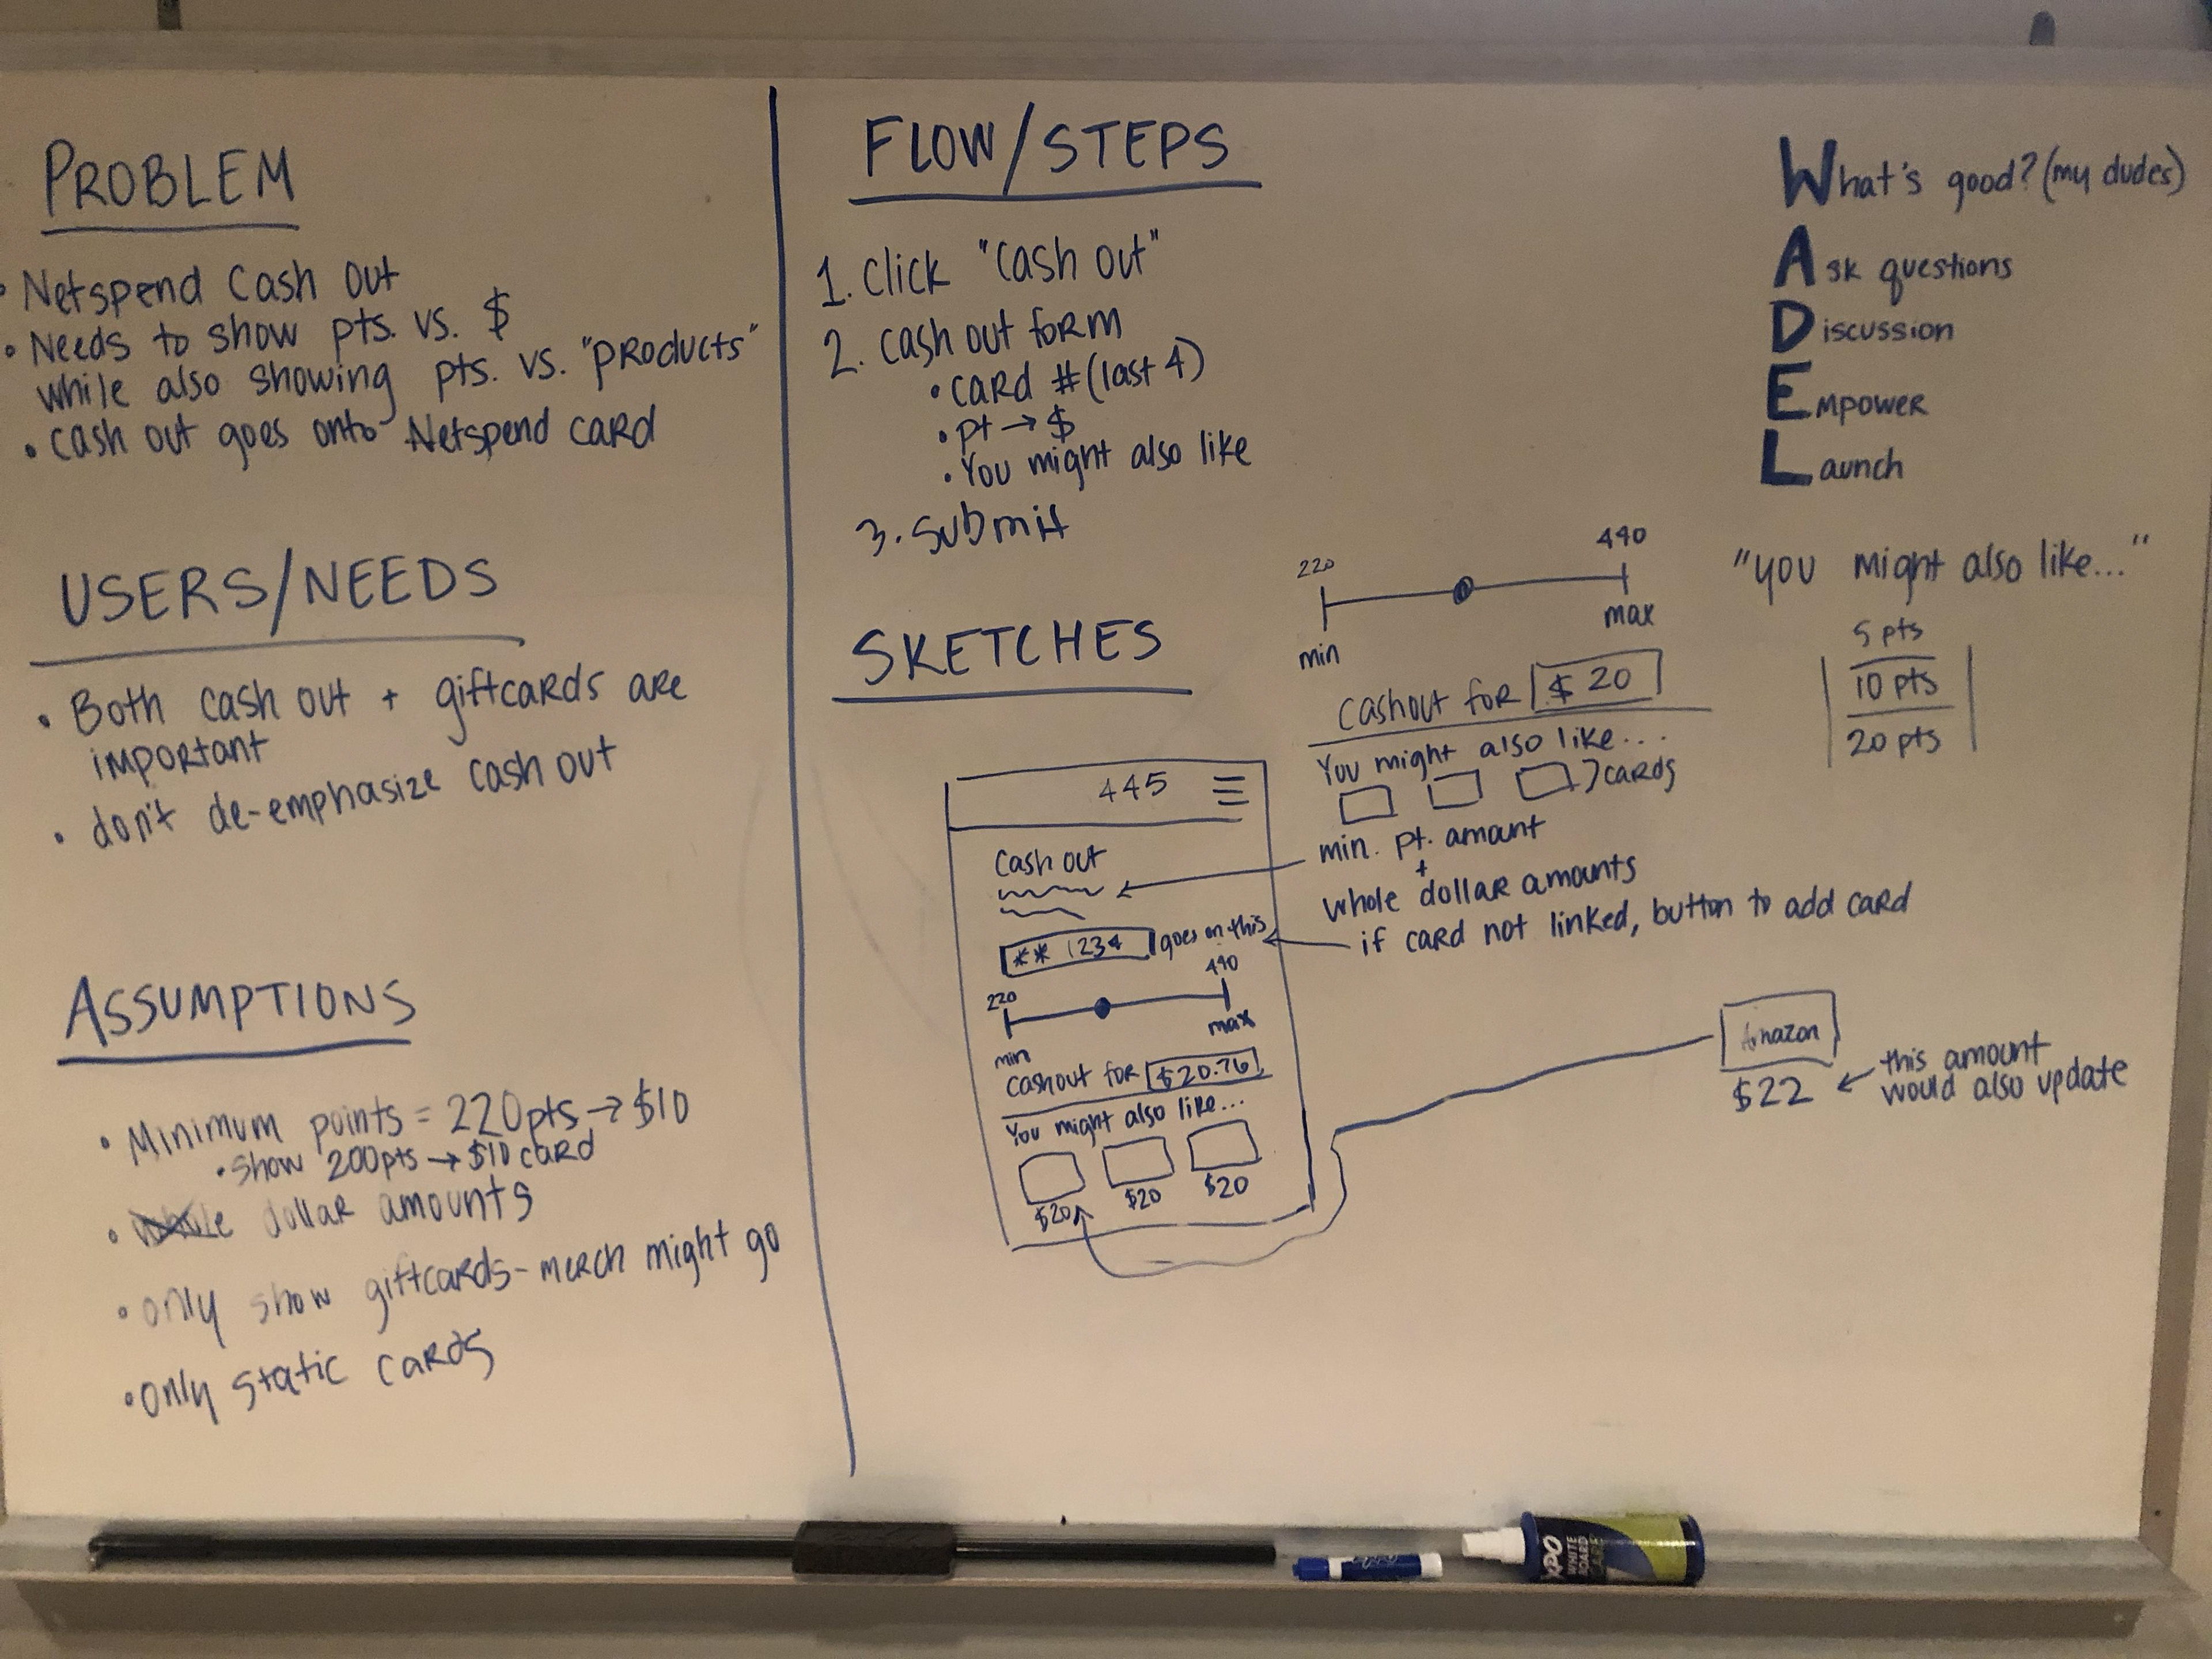 PROBLEM
• Netspend Cash Out
• Needs to show pts. vs. $
while also showing pts. vs. "products"
• cash out goes onto Netspend card
USERS/NEEDS
• Both cash out + giftcards are
important
• don't de-emphasize cash out
ASSUMPTIONS
• Minimum points = 220pts → $10
• Show 200pts → $10 card
• whole dollar amounts
• only show giftcards - merch might go
• only static cards
FLOW/STEPS
1. Click "Cash out"
2. cash out form
• card # (last 4)
• pt → $
• You might also like
3. Submit
SKETCHES
220
440
min
max
Cashout for $20
You might also like...
cards
445
Cash out
** 1234 goes on this
220
440
min
max
Cashout for $20.76
You might also like...
$20
$20
$20
min. pt. amount
+
whole dollar amounts
if card not linked, button to add card
Amazon
$22
this amount
would also update
What's good? (my dudes)
Ask questions
Discussion
Empower
Launch
"you might also like..."
5 pts
10 pts
20 pts
WHITE
BOARD